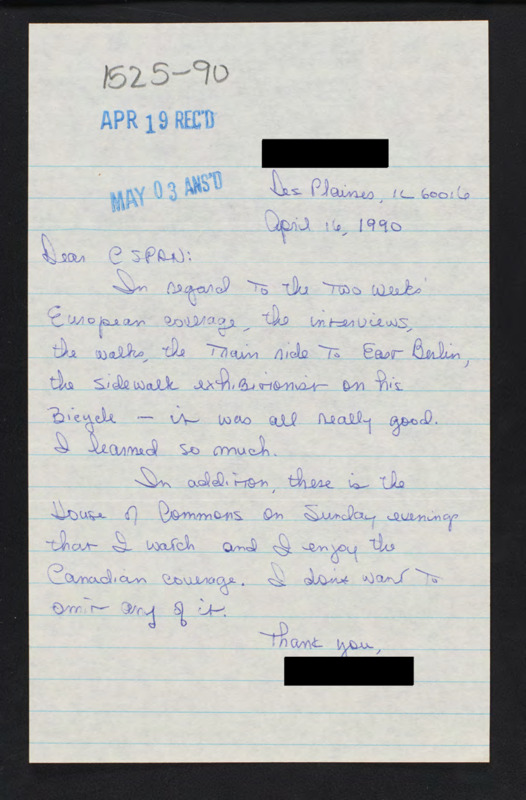 1525-90
APR 19 REC'D
MAY 03 ANS'D
Des Plaines, IL 60016
April 16, 1990
Dear C SPAN:
In regard to the two weeks'
European coverage, the interviews,
the walks, the train ride to East Berlin,
the sidewalk exhibitionist on his
Bicycle — it was all really good.
I learned so much.
In addition, there is the
House of Commons on Sunday evenings
that I watch and I enjoy the
Canadian coverage. I don't want to
omit any of it.
Thank you,